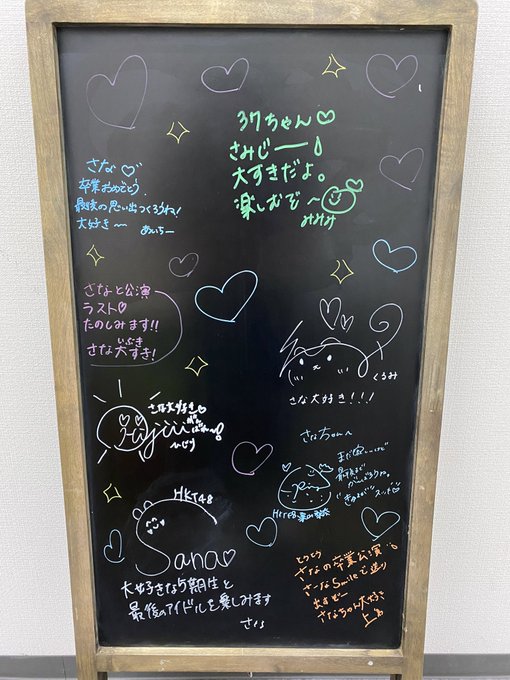 37ちゃん♡
さみじーー!
大すきだよ。
楽しむぞ〜
みみみ
さな♡
卒業おめでとう
最後の思い出つくろうね!
大好き〜
めいちー
さなと公演
ラスト♡
たのしみます!!
さな大すき!
いぶき
くるみ
さな大好き!!!
さな大好き♡
ひじり
さなちゃんへ
最後まで
がんばろうね。
HKT48
Sana♡
大好きな5期生と
最後のアイドルを楽しみます
さな
とうとう
さなの卒業公演
さーなSmileで送り
ますぞー
さなちゃん大好き